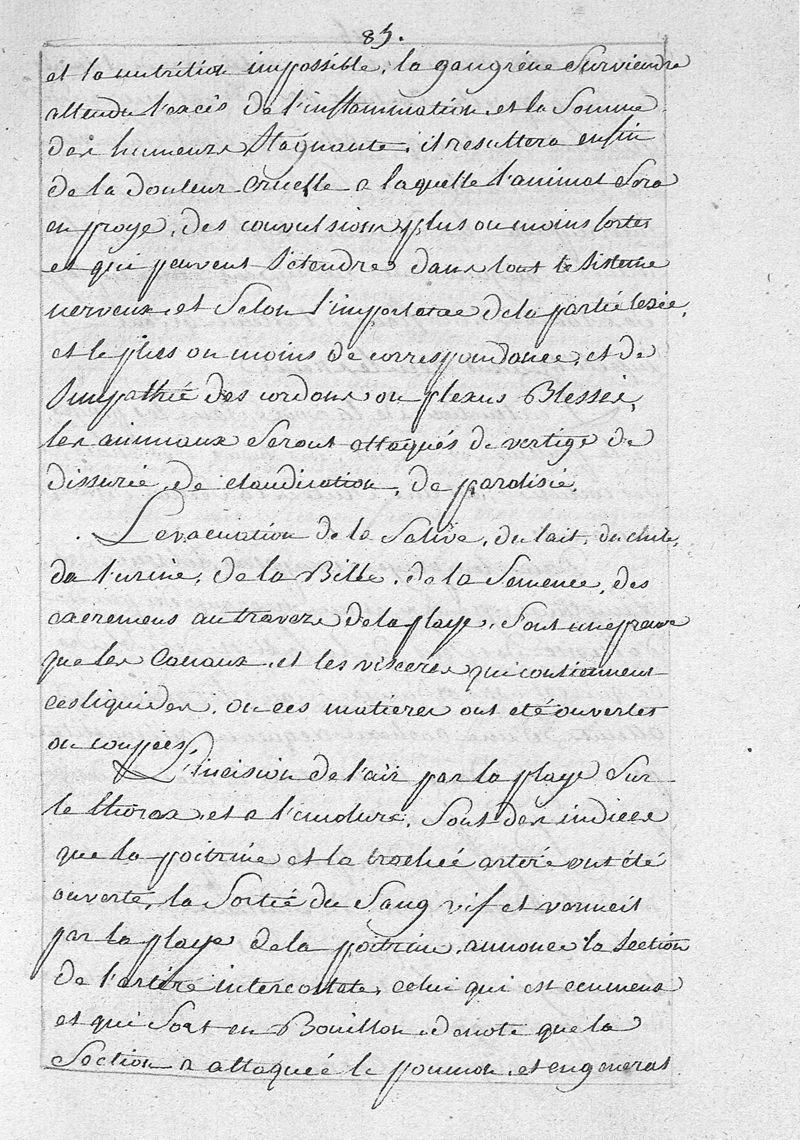 85.
et la nutrition impossible, la gangréne Surviendra
attendu l'excés de l'inflammation, et la Somme
des humeurs Stagnante, il resultera enfin
de la douleur cruelle a laquelle l'animal Sera
en proye, des convulsions plus ou moins fortes
et qui peuvent S'etendre dans tout le Sisteme
nerveux, et Selon l'importance de la partie lezée,
et le plus ou moins de correspondance, et de
Simpathie des cordons ou plexus Blessés,
les animaux Seront attaqués de vertige de
dissurie, de claudication, de paralisie,
L'evacuation de la Salive, du lait, du chile,
de l'urine, de la Bille, de la Semence, des
excremens au travers de la playe, Sont une preuve
que les Canaux, et les visceres qui contiennent
ces liquides, ou ces matieres ont été ouvertes
ou coupées,
L'incision de l'air par la playe Sur
le thorax, et a l'encolure, Sont des indices
que la poitrine et la trachée artére ont été
ouverte, la Sortie du Sang vif et vermeil
par la playe de la poitrine, annonce la Section
de l'artére intercostale, celui qui est ecumeux
et qui Sort en Bouillon, denote que la
Section a attaquée le poumon, et en general